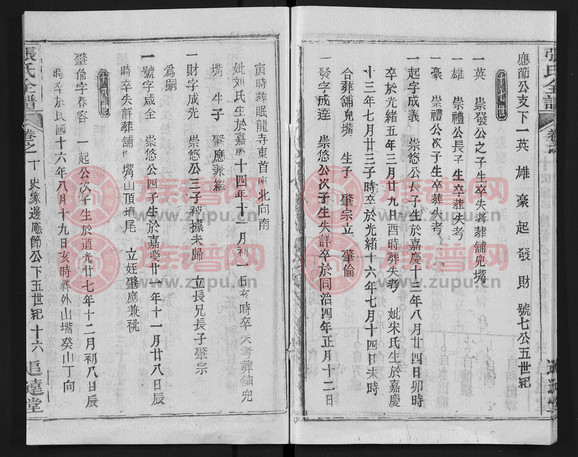 張氏全譜
應節公支下一英雄豪起發財號七公五世紀
一英 崇發公之子生卒失考葬舖兜嘴
一雄 崇禮公長子生卒葬失考
一豪 崇禮公次子生卒葬失考
一起字成義 崇悠公長子生於嘉慶十三年八月廿四日卯時
卒於光緒五年三月廿九日酉時葬失考 妣宋氏生於嘉慶
十三年七月廿三子時卒於光緒十六年七月十四日未時
合葬舖兜嘴 生子 肇宗立 肇倫
一發字成達 崇悠公次子生失詳卒於同治四年正月十二日
寅時葬眠龍寺東首 北向南
妣刘氏生於嘉 十四年十二月初 日亥時卒失考葬舖兜
嘴 生子 肇應兼祧
一財字成先 崇悠公三子被擄未歸 立長兄長子肇宗
為嗣
一號字成全 崇悠公四子生於嘉慶廿一年十一月廿八日辰
時卒失詳葬舖 嘴山頂 尾 立姪肇應兼祧
肇倫字春容 一起公次子生於道光廿七年十二月初八日辰
時卒於民國十六年八月十九日亥時葬外山嘴癸山丁向
張氏全譜
卷之十 史家邊應節公下五世紀 十六 追遠堂
族谱网
www.zupu.cn
族谱网
www.zupu.cn
族谱网
www.zupu.cn
族谱网
www.zupu.cn